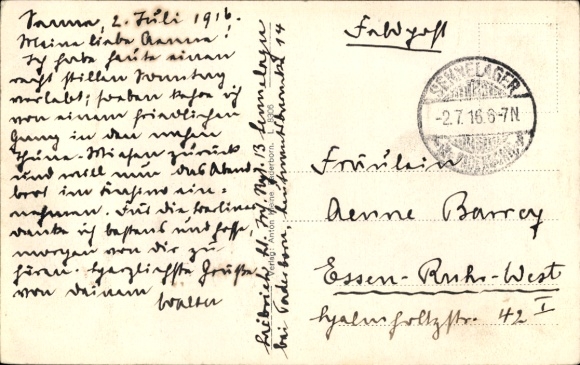 Senne, 2. Juli 1916.
Meine liebe Aenne!
Ich habe heute einen
recht stillen Sonntag
verlebt; soeben kehre ich
von einem friedlichen
Gang in den nahen
Wiesen zurück
und will nun das Abend-
brot im Kasino ein-
nehmen. Für die
danke ich bestens und hoffe,
morgen von dir zu
hören. Herzlichste Grüße
von deinem
Walter
Lt. Inf. Rgt. 13 Sennelager
bei Paderborn, 14
Verlag: Anton Paderborn. L. 8906
Feldpost
SENNELAGER
-2.7.16.6-7N
Fräulein
Aenne Barrey
Essen-Ruhr-West
holtzstr. 42 I